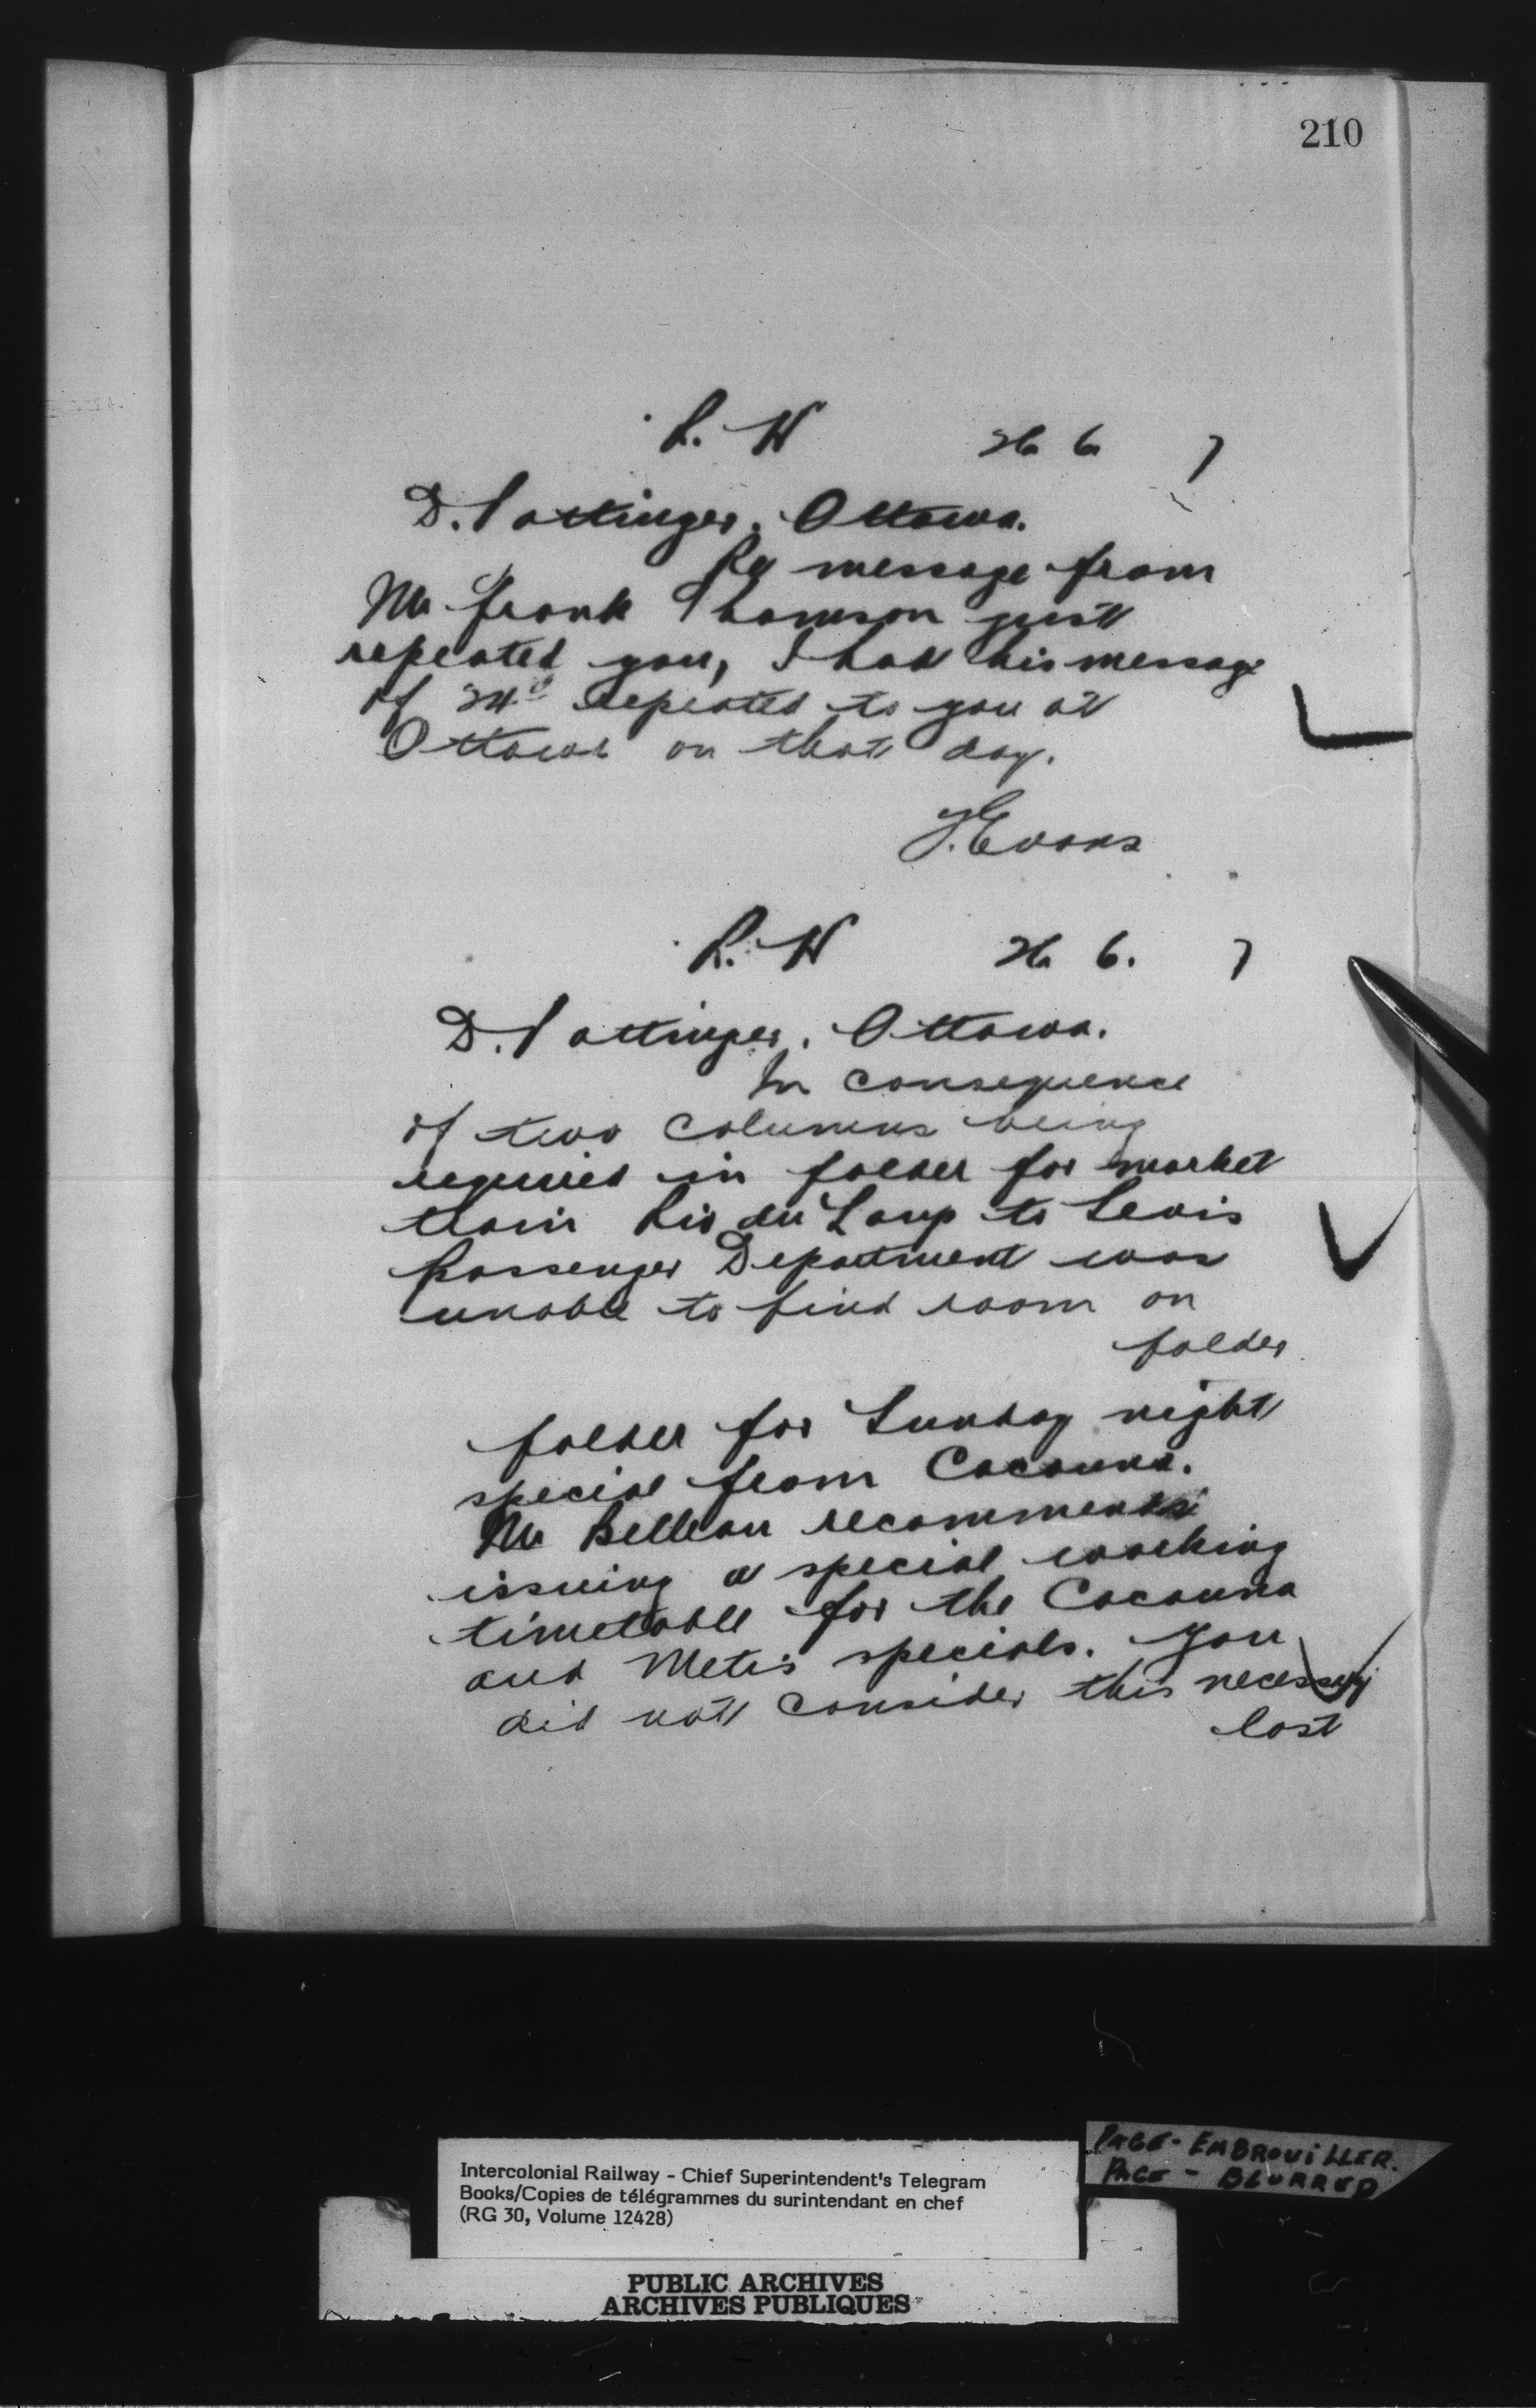 210
R. W 26 6 7
D. Pottinger, Ottawa.
Re message from
Mr Frank Thomson just
repeated you, I had his message
of 24th repeated to you at
Ottawa on that day.
J. Evans
R. W 26 6. 7
D. Pottinger, Ottawa.
In consequence
of two columns being
required in folder for market
train Riv du Loup to Levis
Passenger Department was
unable to find room on
folder
folder for Sunday night
special from Cacouna.
Mr Belleau recommends
issuing a special working
timetable for the Cacouna
and Metis specials. You
did not consider this necessary
last
PAGE - EMBROUILLER.
PAGE - BLURRED
Intercolonial Railway - Chief Superintendent's Telegram
Books/Copies de télégrammes du surintendant en chef
(RG 30, Volume 12428)
PUBLIC ARCHIVES
ARCHIVES PUBLIQUES